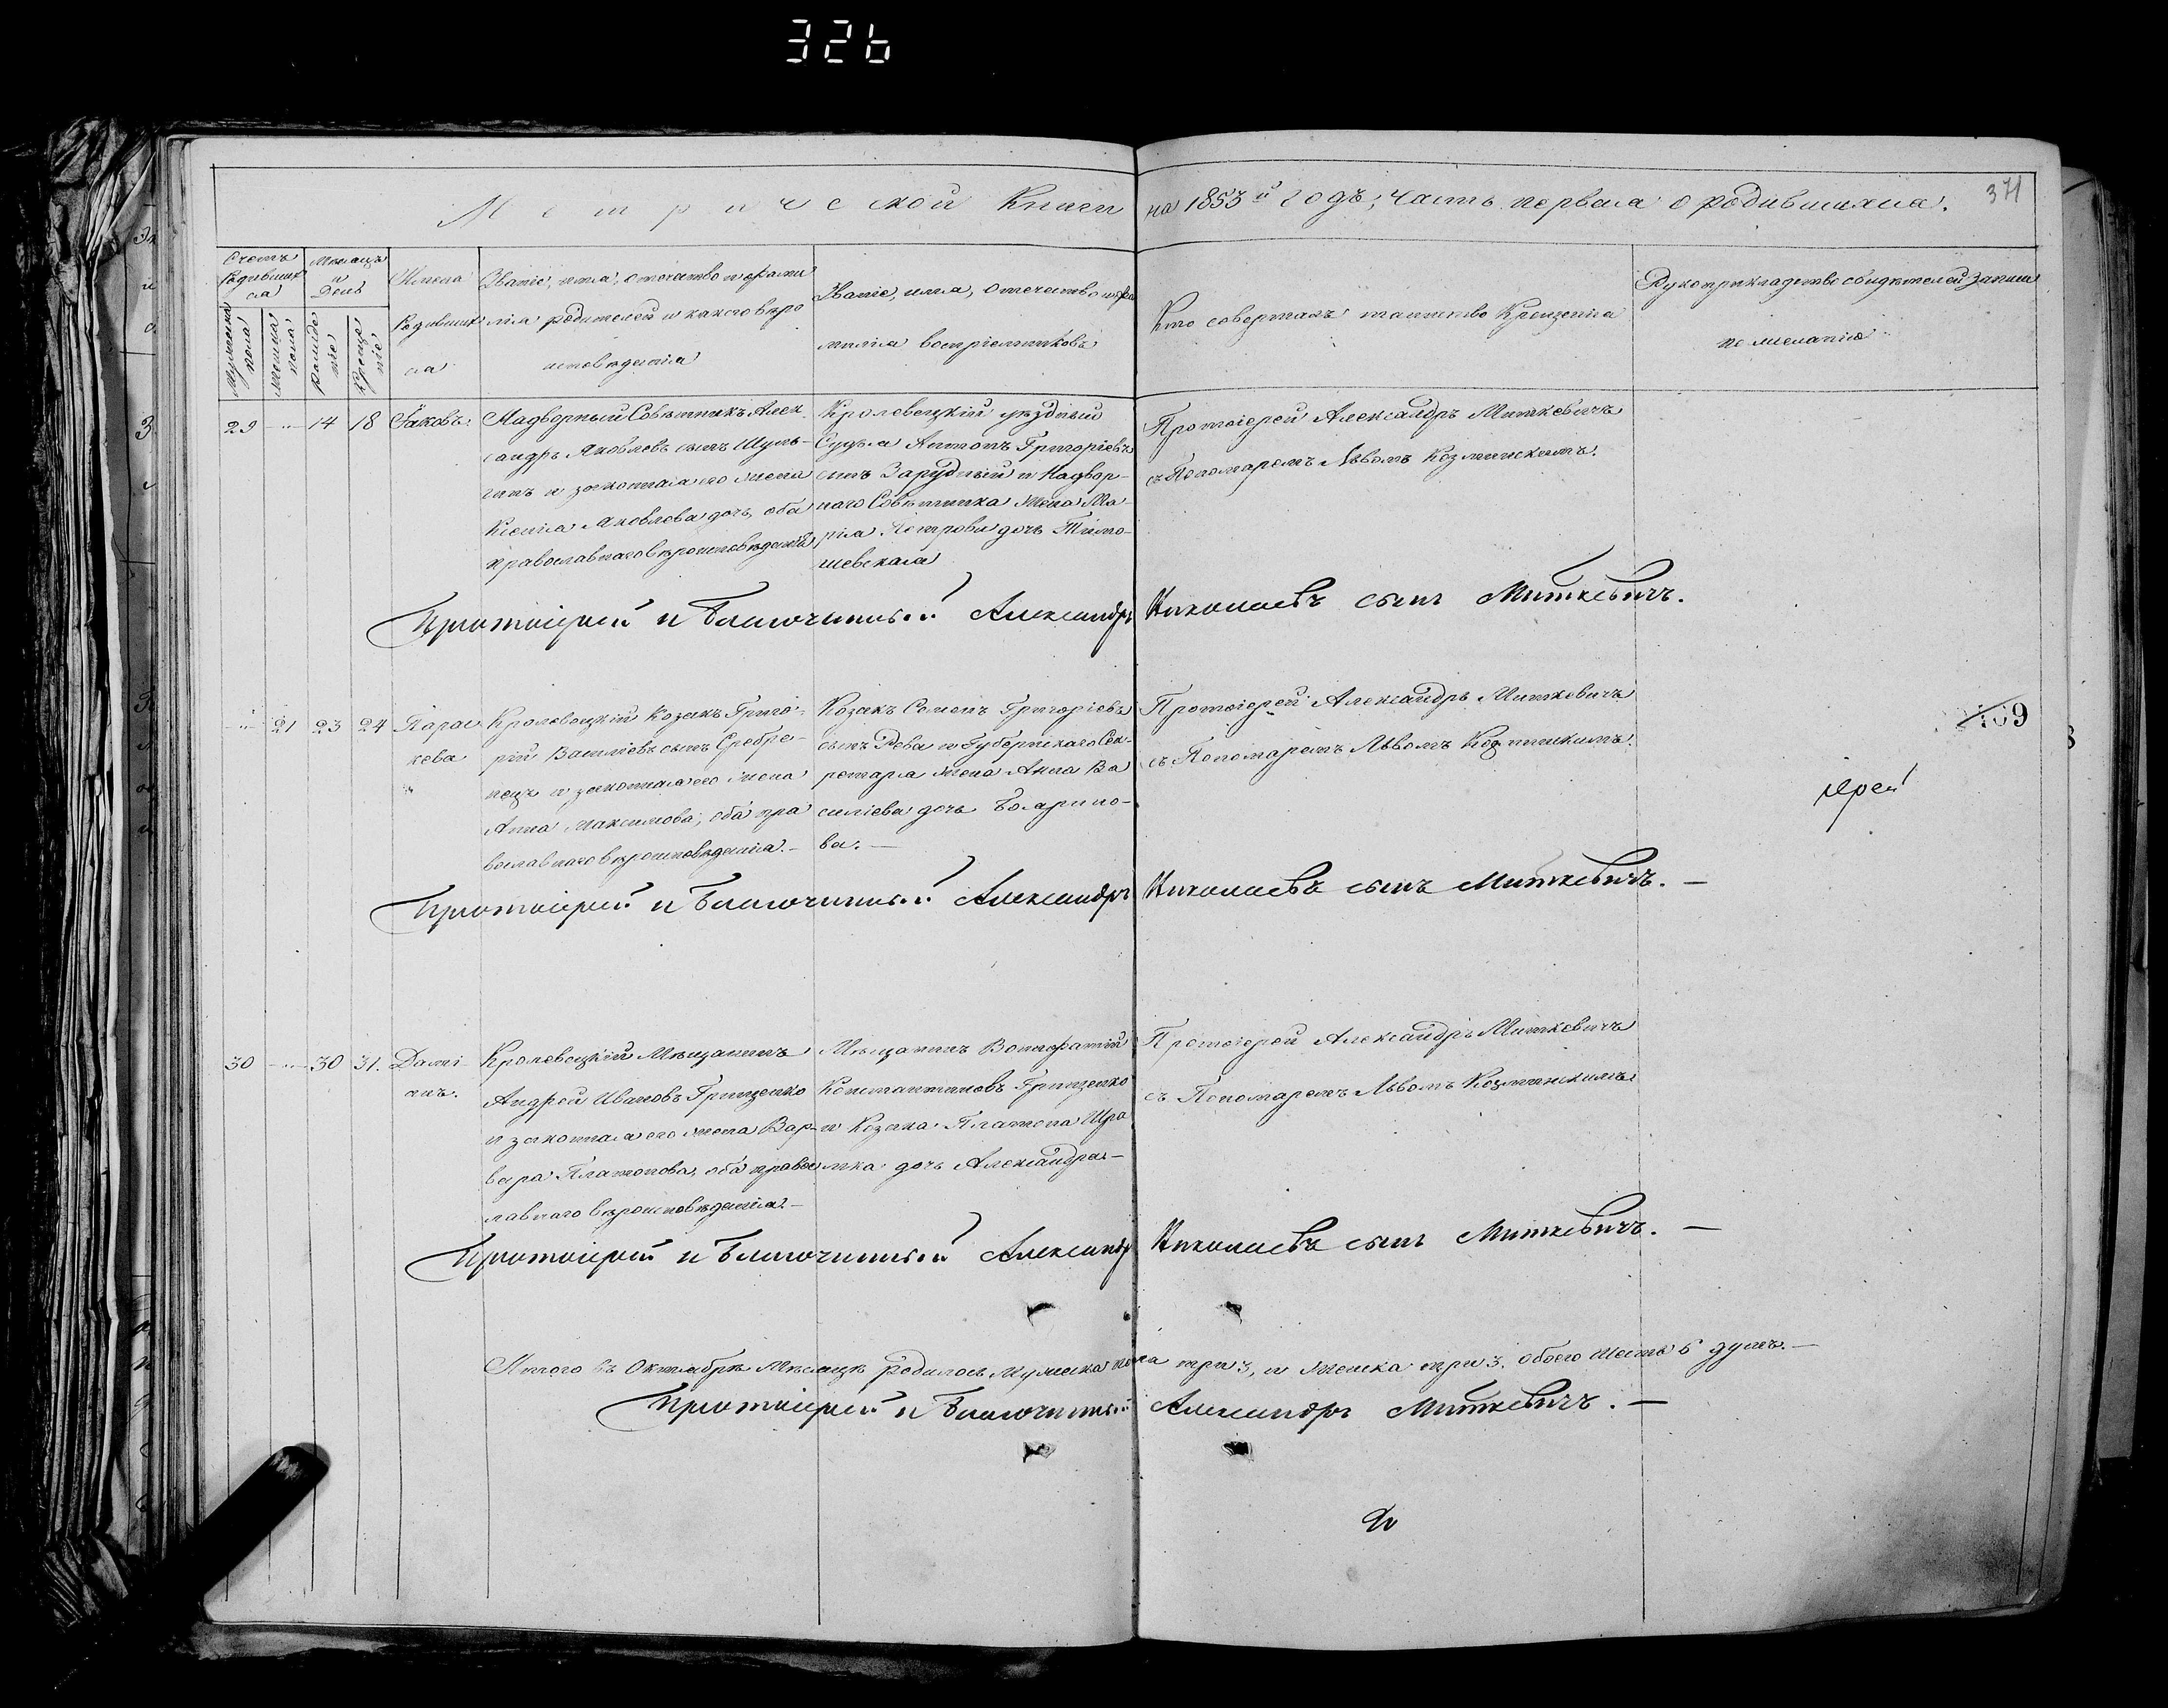 326
371
Метрической Книги на 1853й годъ, Часть первая о родившихся.
Счетъ Родившихся
Мужеска пола
Женска пола
Мѣсяцъ и День
Рожденіе
Крещеніе
Имена Родившихся
Званіе, имя, отечество и фамилія родителей и какого вѣроисповѣданія
Званіе, имя, отечество и фамилія воспріемниковъ
Кто совершалъ таинство Крещенія
Рукоприкладство свидѣтелей записи по желанію
29 14 18 Іаковъ.
Надворный Совѣтникъ Алек
сандръ Яковлевъ сынъ Шуль-
гинъ и законная его жена
Ксенія Яковлева дочь, оба
православнаго вѣроисповѣданія
Кролевецкій уѣздный
Судья Антонъ Григоріевъ
сынъ Зарудный и Надвор-
наго Совѣтника жена Ма-
рія Петрова дочь Тимо-
шевская
Протоіерей Александръ Миткевичъ
съ Пономаремъ Львомъ Козминскимъ.
Протоіерей и Благочинный Александръ Николаевъ сынъ Миткевичъ.
21 23 24 Парас
кева
Кролевецкій Козакъ Григо-
рій Василіевъ сынъ Сребре-
нецъ и законная его жена
Анна Максимова, оба пра
вославнаго вѣроисповѣданія.-
Козакъ Семенъ Григоріевъ
сынъ Рева и Губернскаго Сек-
ретаря жена Анна Ва
силіева дочь Бояриno-
ва.
Протоіерей Александръ Миткевичъ
съ Пономаремъ Львомъ Козминскимъ.
409
іерей
Протоіерей и Благочинный Александръ Николаевъ сынъ Миткевичъ.-
30 30 31. Дамі-
анъ.
Кролевецкій Мѣщанинъ
Андрей Ивановъ Гриценко
и законная его жена Вар-
вара Платонова, оба правос
лавнаго вѣроисповѣданія.-
Мѣщанинъ Вонифатій
Константиновъ Гриценко
и Козака Платона Шра
мка дочь Александра-
Протоіерей Александръ Миткевичъ
съ Пономаремъ Львомъ Козминскимъ
Протоіерей и Благочинный Александръ Николаевъ сынъ Миткевичъ.-
Итого въ Октябрѣ Мѣсяцѣ родилось мужеска пола три 3, и женска три 3. обоего шесть 6 душъ.-
Протоіерей и Благочинный Александръ Миткевичъ.-